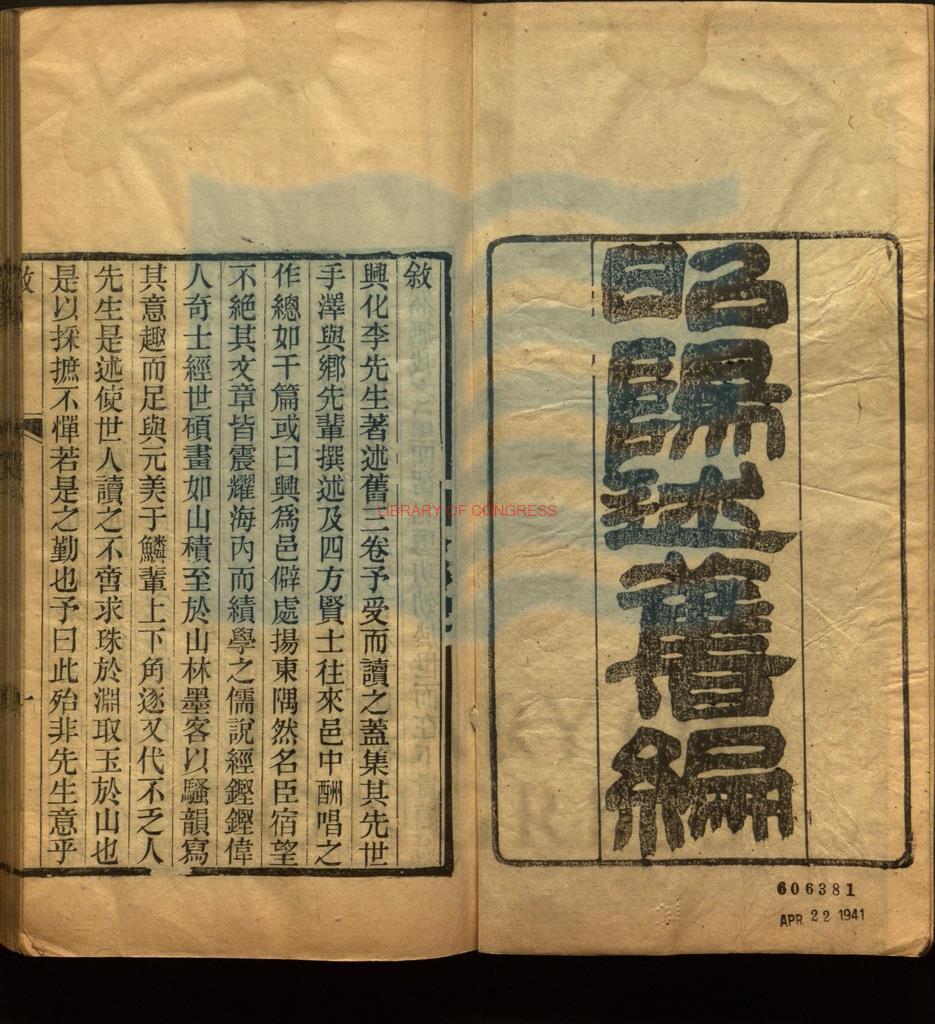 昭陽述舊編
606381
APR 22 1941
LIBRARY OF CONGRESS
敘
興化李先生著述舊三卷予受而讀之蓋集其先世
手澤與鄉先輩撰述及四方賢士往來邑中酬唱之
作總如干篇或曰興爲邑僻處揚東隅然名臣宿望
不絕其文章皆震耀海內而績學之儒說經鏗鏗偉
人奇士經世碩畫如山積至於山林墨客以騷韻寫
其意趣而足與元美于鱗輩上下角逐又代不乏人
先生是述使世人讀之不啻求珠於淵取玉於山也
是以採摭不憚若是之勤也予曰此殆非先生意乎
敘
一